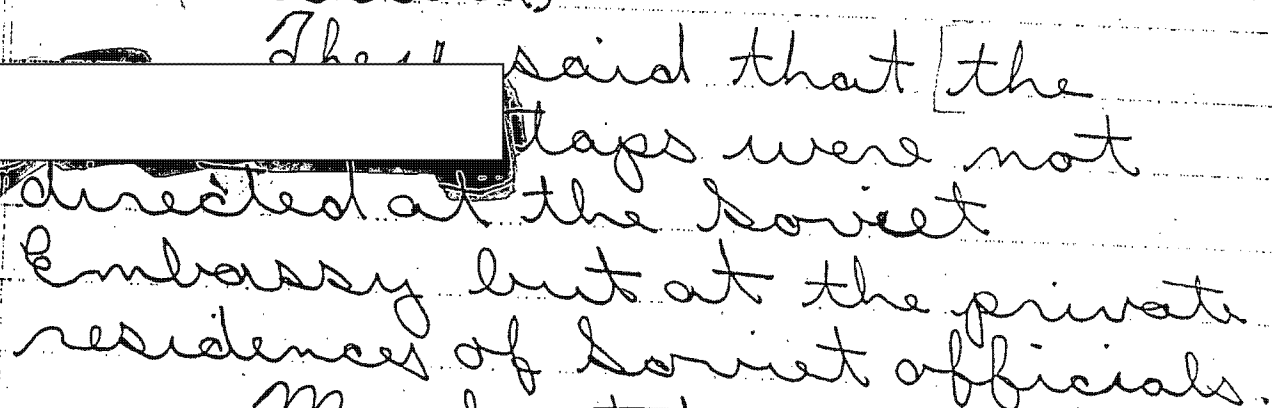 They said that [the
taps were not
directed at the Soviet
Embassy but at the private
residences of Soviet officials.